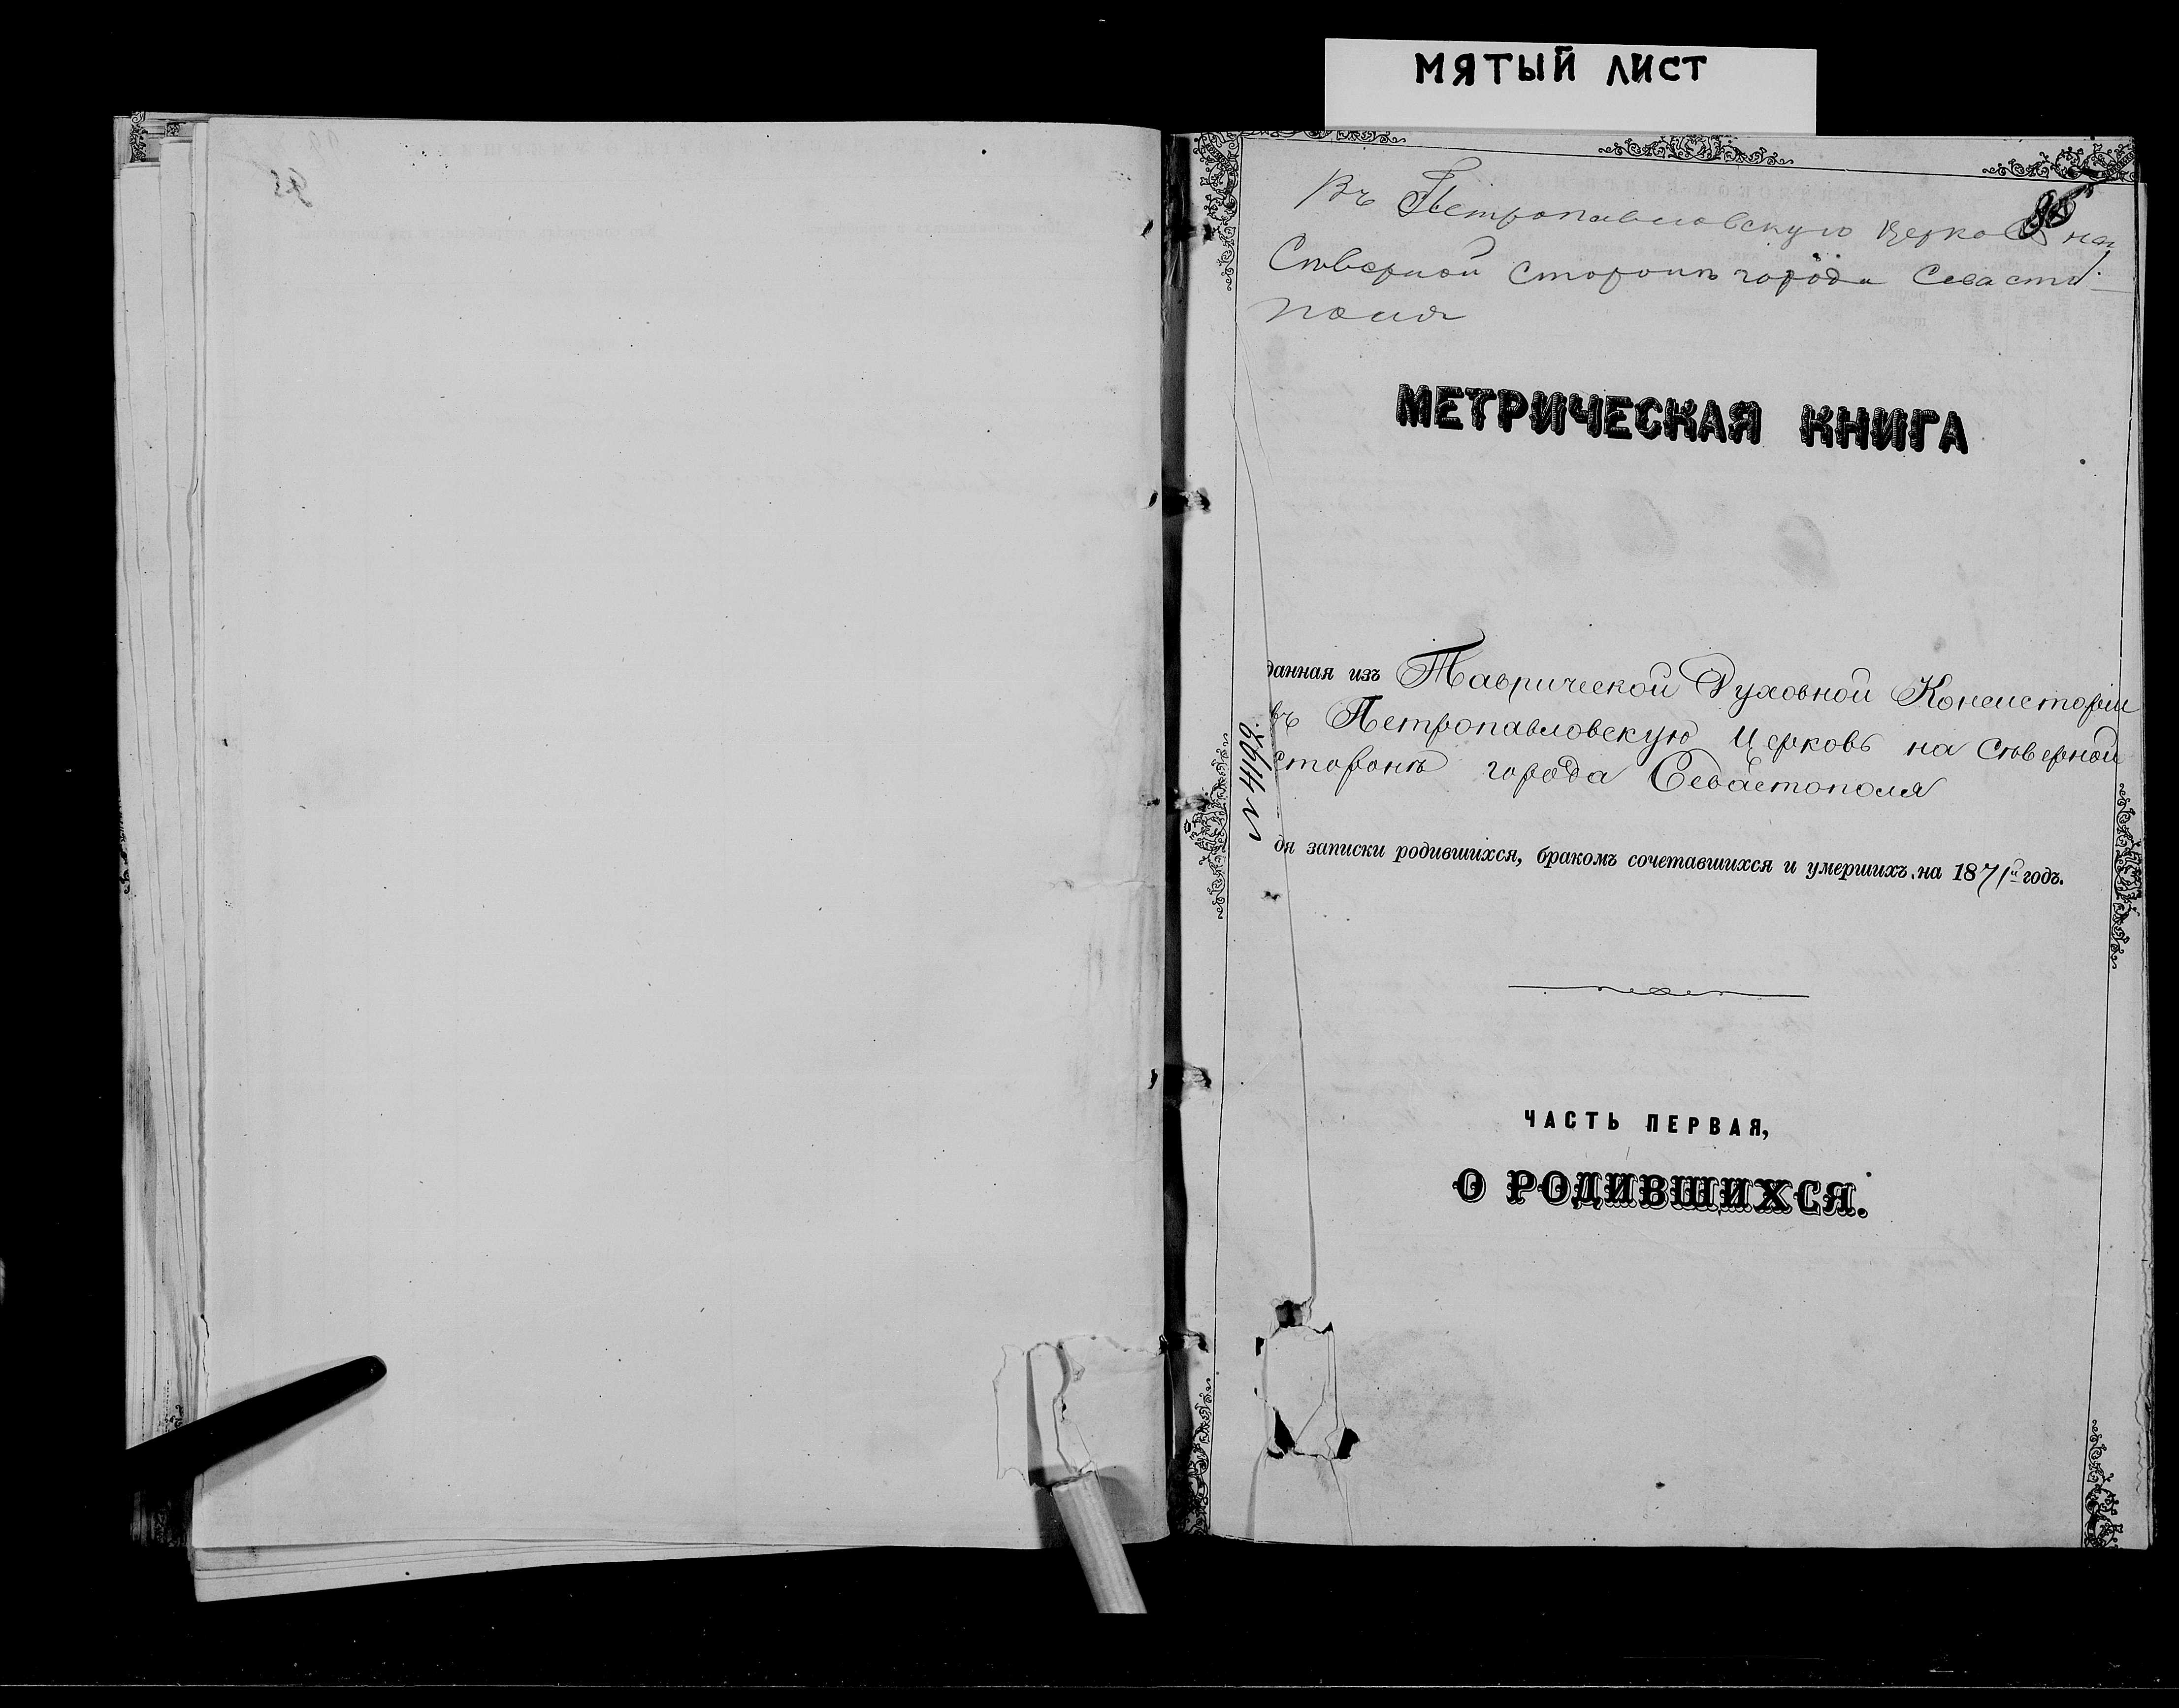 МЯТЫЙ ЛИСТ
Въ Петропавловскую Церковь на
Сѣверной Сторонѣ города Севасто-
поля
МЕТРИЧЕСКАЯ КНИГА
данная изъ Таврической Духовной Консисторіи
въ Петропавловскую Церковь на Сѣверной
сторонѣ города Севастополя
№ 41679.
дя записки родившихся, бракомъ сочетавшихся и умершихъ, на 1871й годъ.
ЧАСТЬ ПЕРВАЯ,
О РОДИВШИХСЯ.